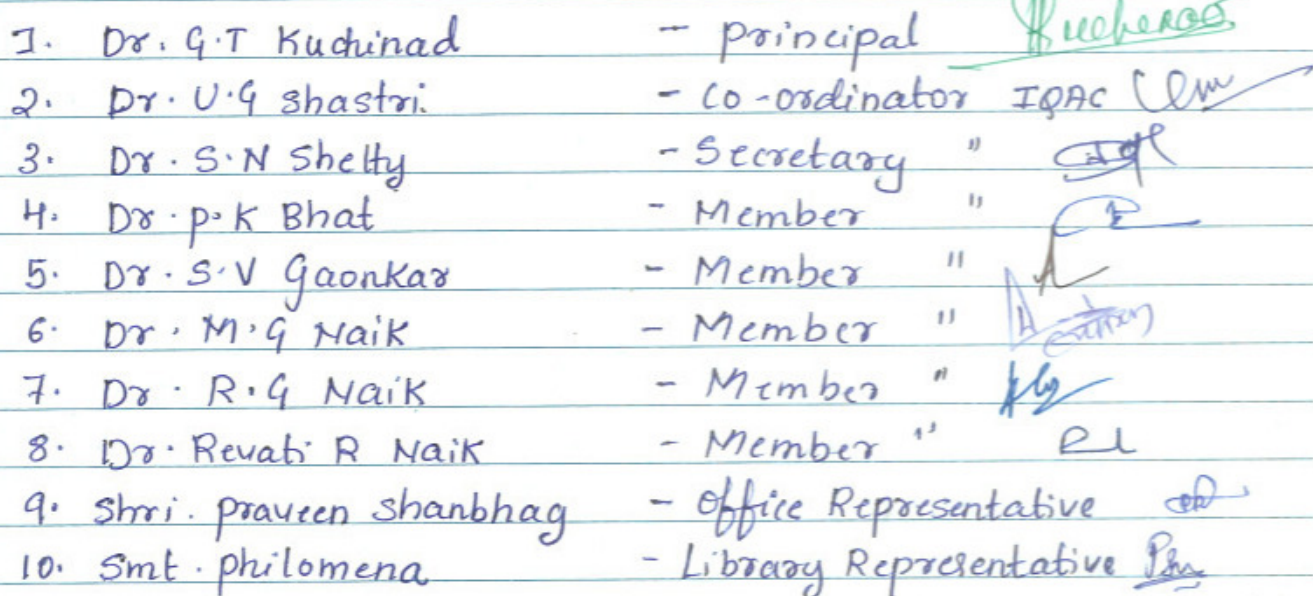 1. Dr. G.T Kuchinad - principal
2. Dr. U.G shastri. - Co-ordinator IQAC
3. Dr. S.N Shetty - Secretary "
4. Dr. P.K Bhat - Member "
5. Dr. S.V Gaonkar - Member "
6. Dr. M.G Naik - Member "
7. Dr. R.G Naik - Member "
8. Dr. Revati R Naik - Member "
9. Shri. praveen shanbhag - Office Representative
10. Smt. philomena - Library Representative